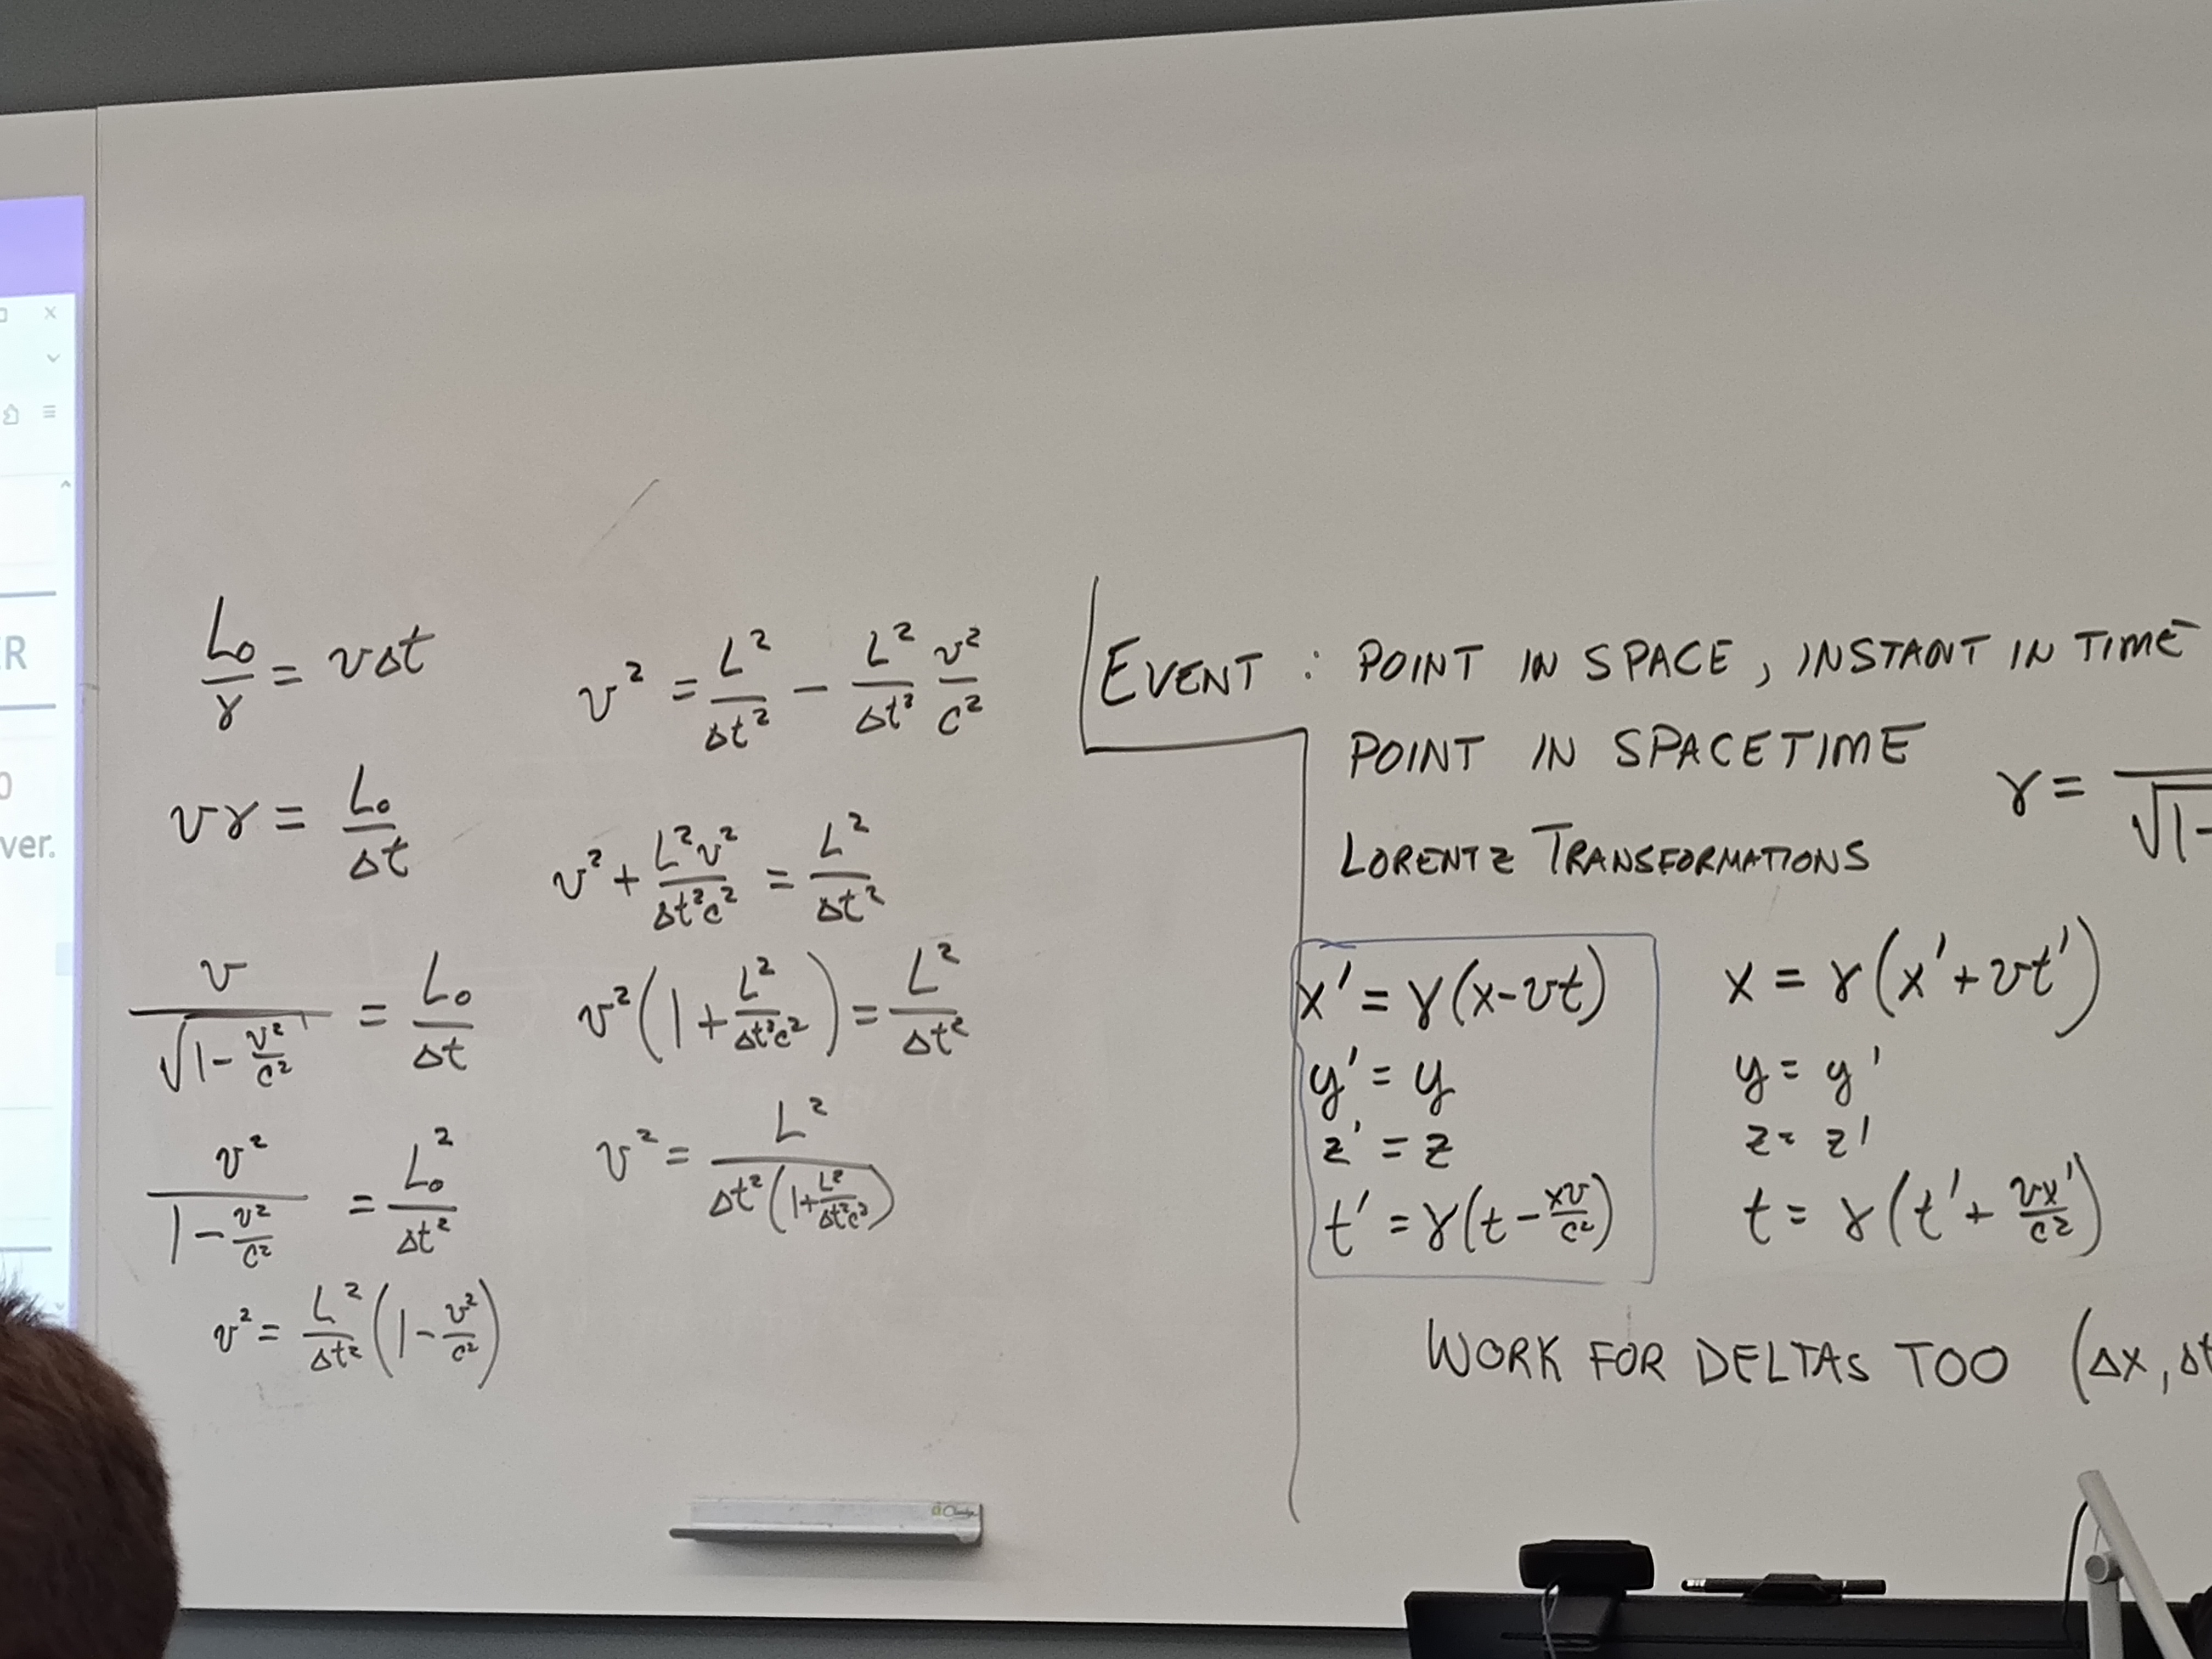 R
0
ver.
L₀/γ = vΔt
vγ = L₀/Δt
v/√(1-v²/c²) = L₀/Δt
v²/(1-v²/c²) = L₀²/Δt²
v² = L²/Δt² (1-v²/c²)
v² = L²/Δt² - L²/Δt² v²/c²
v² + L²v²/Δt²c² = L²/Δt²
v²(1+L²/Δt²c²) = L²/Δt²
v² = L²/Δt²(1+L²/Δt²c²)
EVENT : POINT IN SPACE, INSTANT IN TIME
POINT IN SPACETIME
γ = /√1-
LORENTZ TRANSFORMATIONS
x' = γ(x-vt)
y' = y
z' = z
t' = γ(t-xv/c²)
x = γ(x'+vt')
y = y'
z = z'
t = γ(t'+vx'/c²)
WORK FOR DELTAS TOO (Δx, Δt